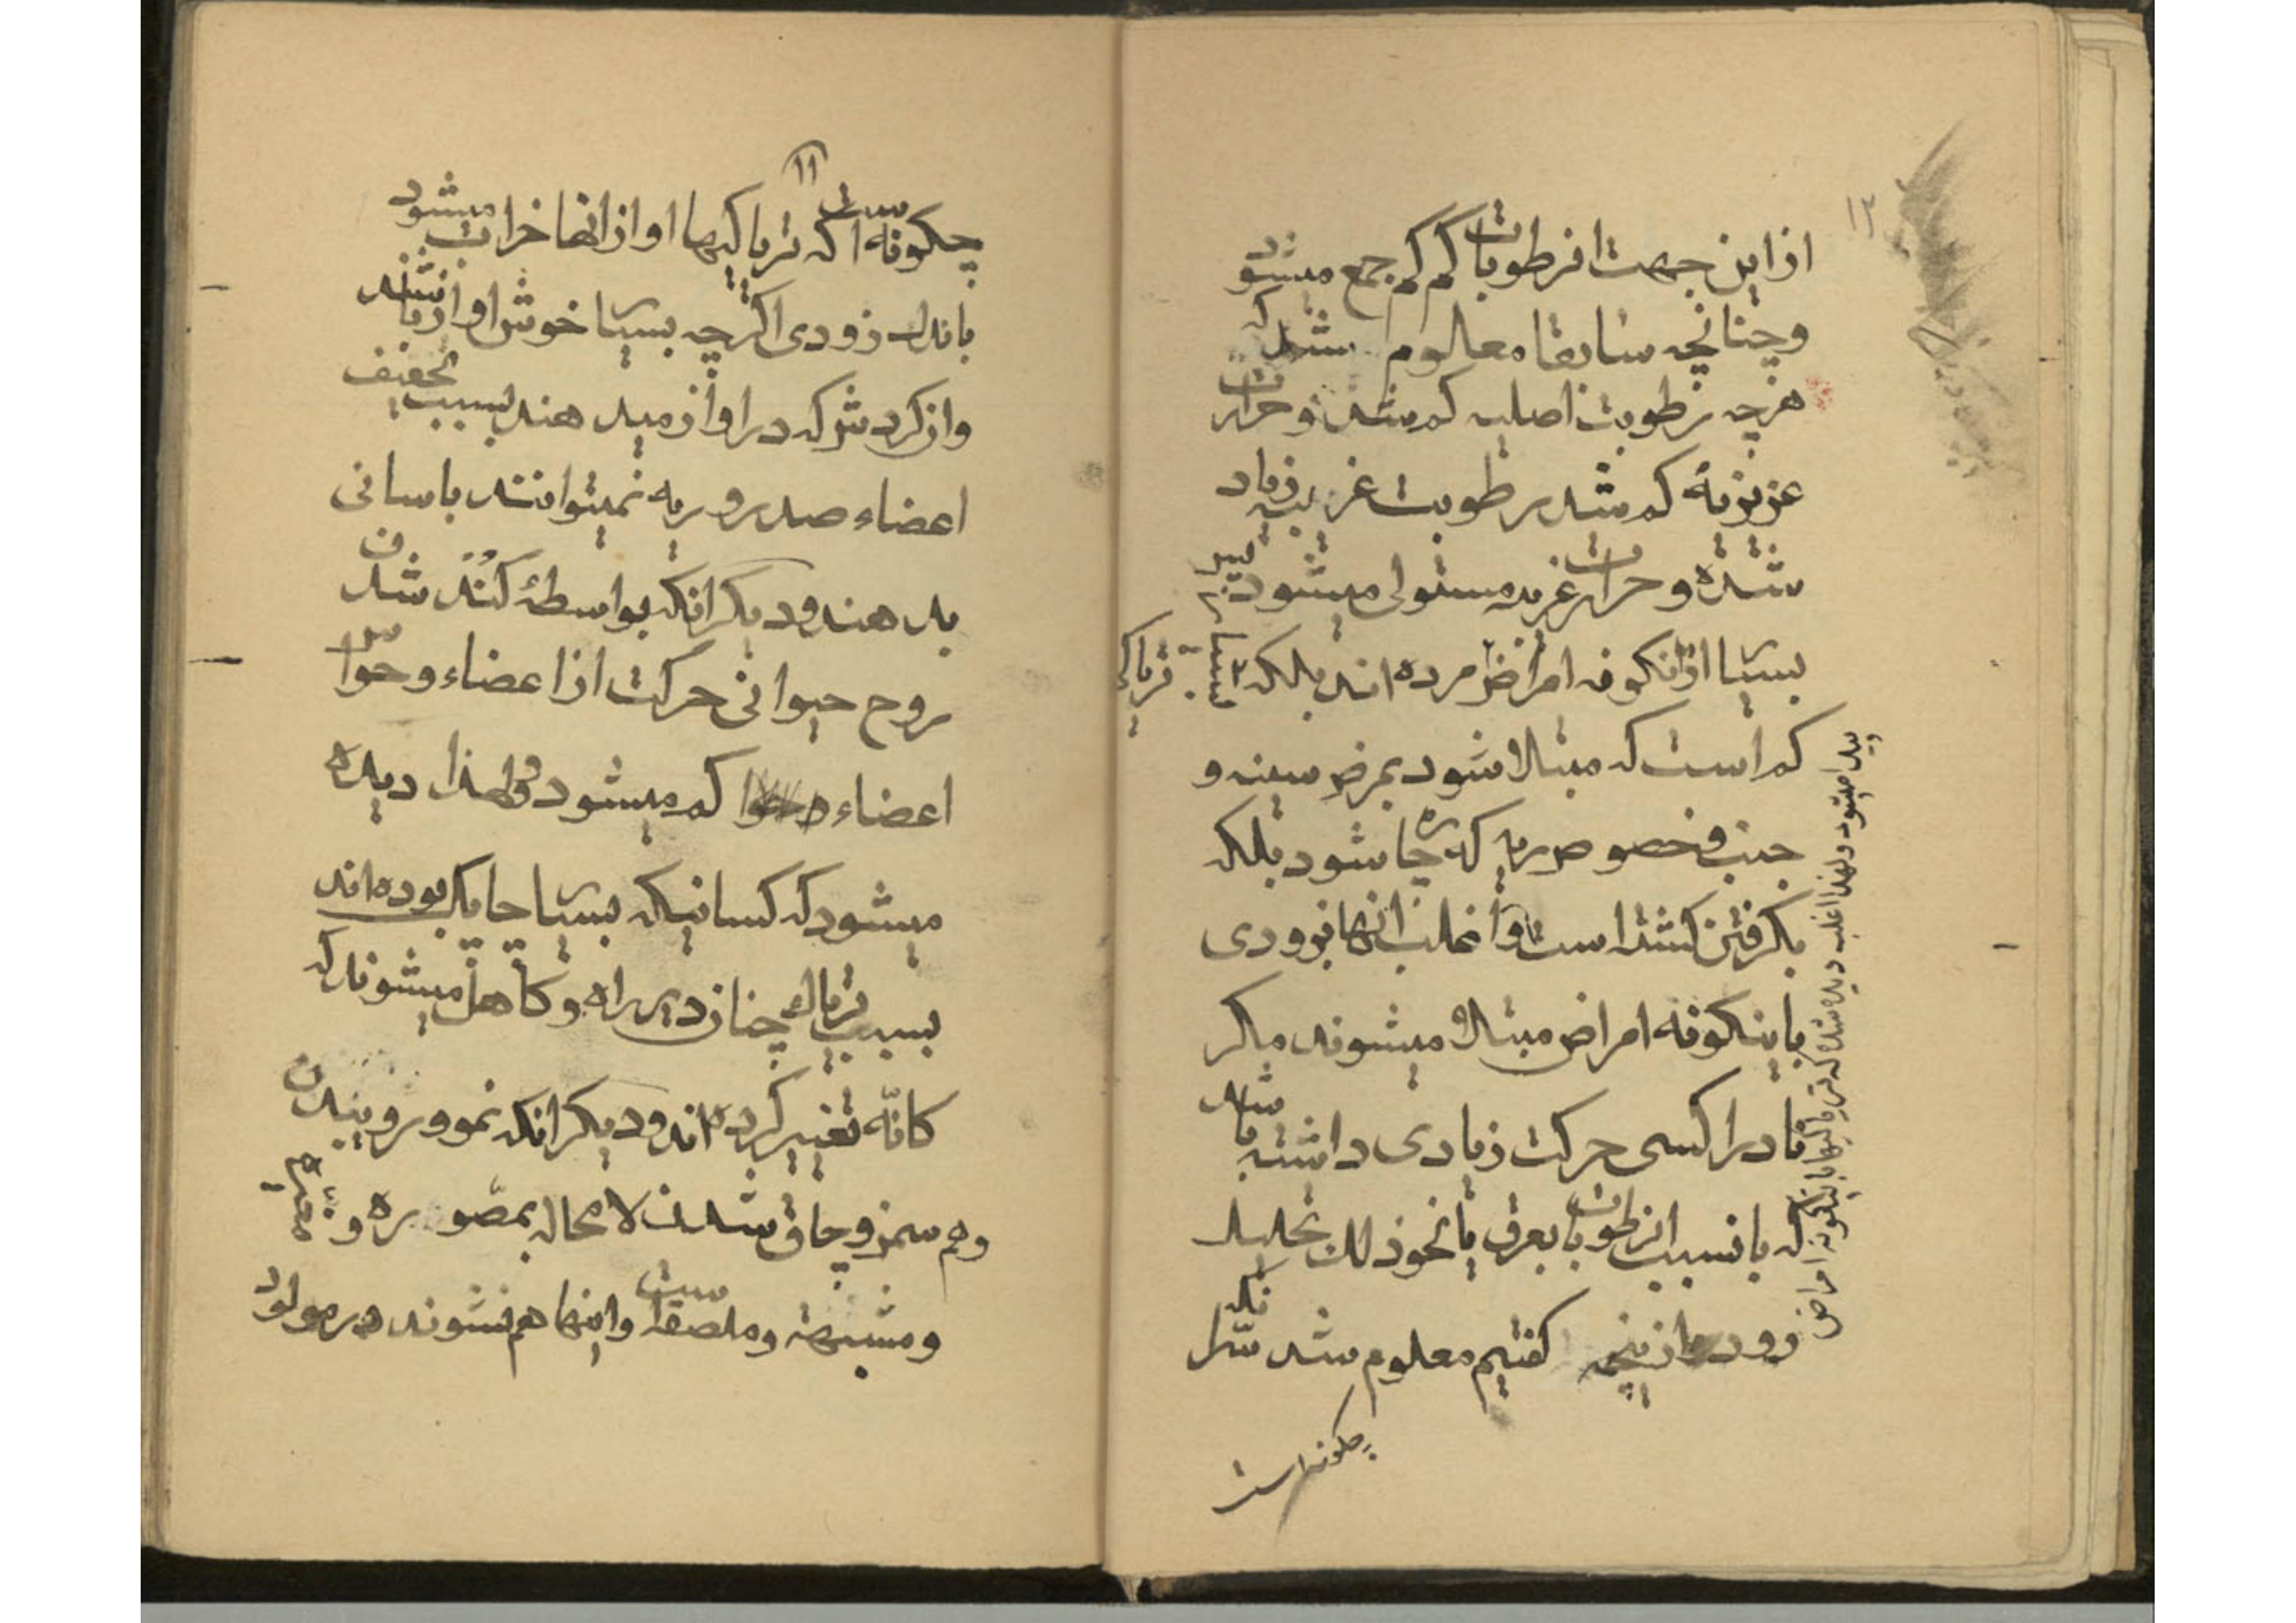 ۱۲
از این جهت ان رطوبات کم کم جمع میشود
و چنانچه سابقا معلوم شد که
هر چه رطوبت اصلیه کم شد و حرارت
غریزیه کم شد رطوبت غریبه زیاد
شده و حرارت غریبه مستولی میشود پس
بسیار از اینگونه امراض مرده اند بلکه تریاکی
کم است که مبتلا شود بمرض سینه و
جنب و خصوص ریه که چاره شود بلکه
بگرفتن کشته است و اغلب انها بزودی
باینگونه امراض مبتلا میشوند مگر
نادرا کسی حرکت زیادی داشته باشد
که بانسبب ان رطوبات بعرق یا نحو ذلک تحلیل
رود و از اینچه گفتیم معلوم شد سر انکه
چگونه است
پیدا میشود و لهذا اغلب دیده شده که تریاکیها باینگونه امراض
۱۱
چگونه است که تریاکیها اواز انها خراب میشود
باندک زودی اگر چه بسیار خوش اواز باشند
و از گردش که در اواز میدهند بسبب تخفیف
اعضاء صدر و ریه نمیتوانند باسانی
بدهند و دیگر انکه بواسطهٔ کند شدن
روح حیوانی حرکت از اعضاء و حواس
اعضاء کم میشود و لهذا دیده
میشود که کسانیکه بسیار چابک بوده اند
بسبب تریاک چنان دیر راه و کاهل میشوند که
کانّه تغییر کرده اند و دیگر انکه نمو و روییدن
و هم سمن و چاق شدن لا محاله بمصّوره و
و مشبهة و ملصقه است و اینها هم نشوند در مولود